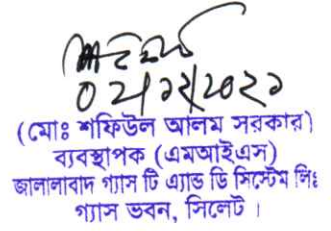 ০২/১২/২০২১
(মোঃ শফিউল আলম সরকার)
ব্যবস্থাপক (এমআইএস)
জালালাবাদ গ্যাস টি এ্যান্ড ডি সিস্টেম লিঃ
গ্যাস ভবন, সিলেট ।